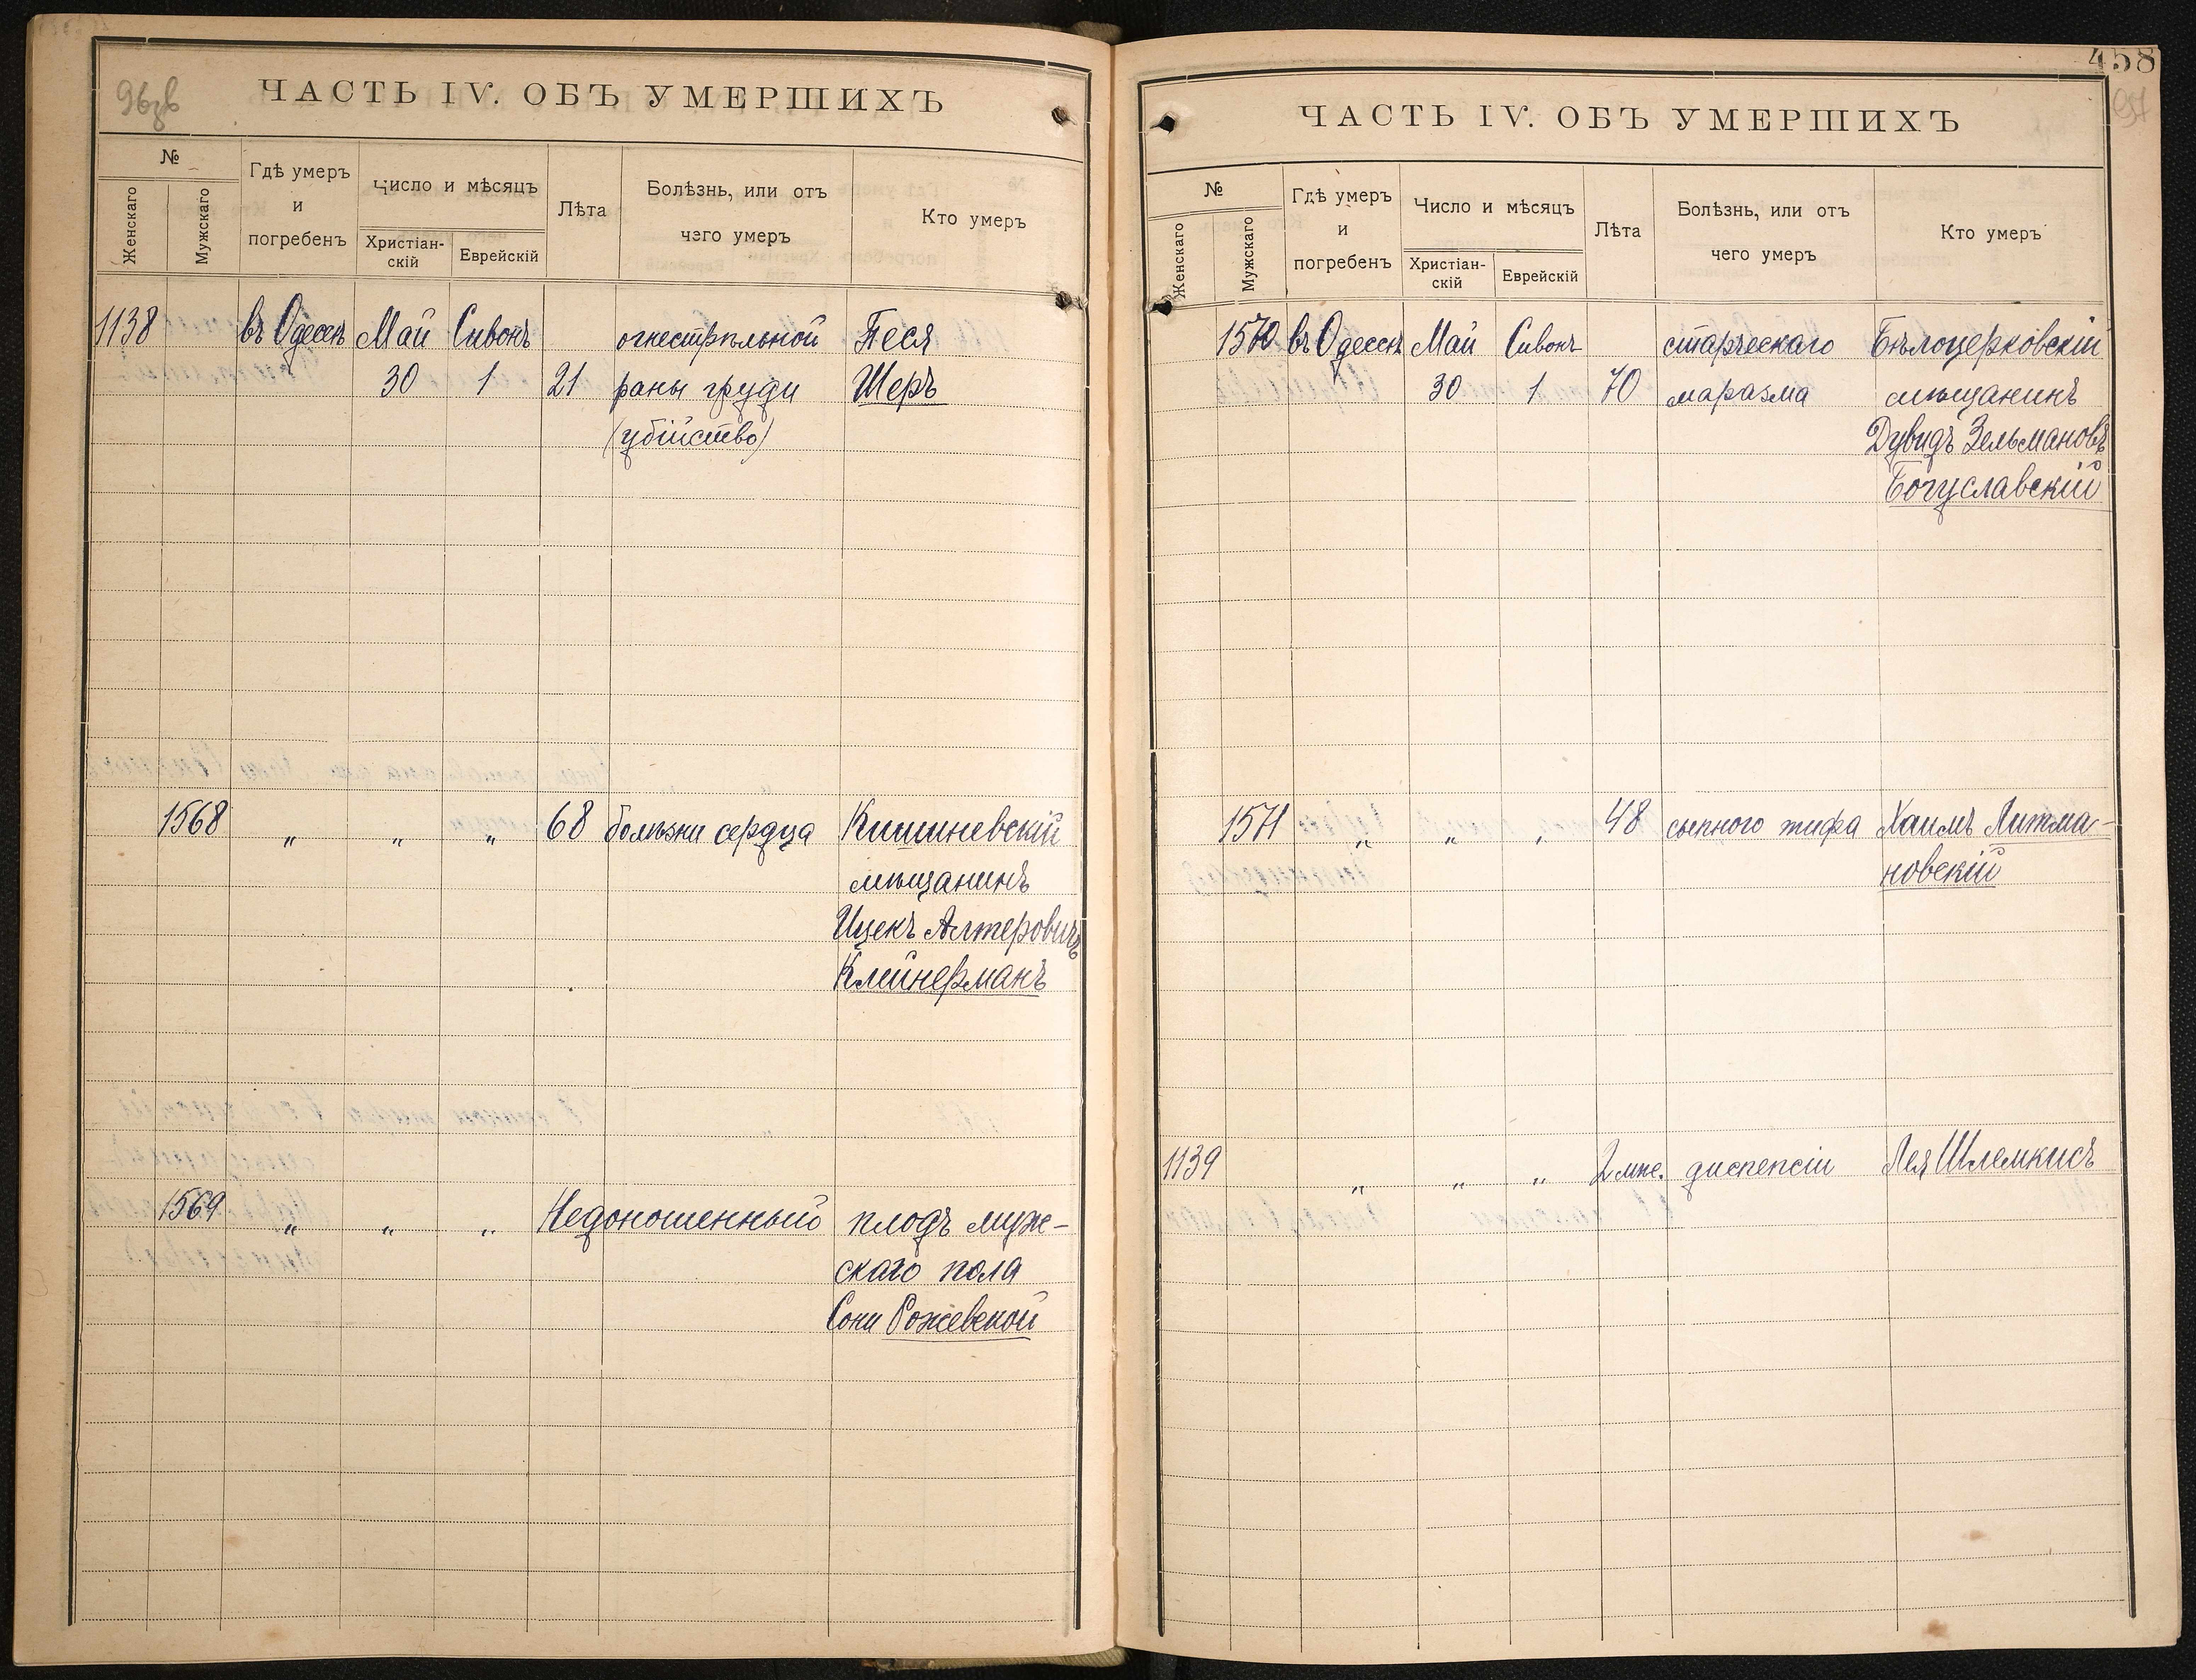 ЧАСТЬ IV. ОБЪ УМЕРШИХЪ
№
Женскаго
Мужскаго
Гдѣ умеръ
и
погребенъ
Число и мѣсяцъ
Христіан-
скій
Еврейскій
Лѣта
Болѣзнь, или отъ
чего умеръ
Кто умеръ
1138 въ Одессѣ Май Сивонъ огнестрѣльной Песя
30 1 21 раны груди Шеръ
(убійство)
1568 " " " 68 болѣзни сердца Кишиневскій
мѣщанинъ
Ицекъ Алтеровичъ
Клейнерманъ
1569 " " " Недоношенный плодъ муж-
скаго пола
Сони Рожевской
458
ЧАСТЬ IV. ОБЪ УМЕРШИХЪ
№
Женскаго
Мужскаго
Гдѣ умеръ
и
погребенъ
Число и мѣсяцъ
Христіан-
скій
Еврейскій
Лѣта
Болѣзнь, или отъ
чего умеръ
Кто умеръ
1570 въ Одессѣ Май Сивонъ старческаго Бѣлоцерковскій
30 1 70 маразма мѣщанинъ
Дувидъ Зельмановъ
Богуславскій
1571 " " " 48 сыпного тифа Хаимъ Литма-
новскій
1139 " " " 2 мѣс. диспепсіи Лея Шлемкисъ